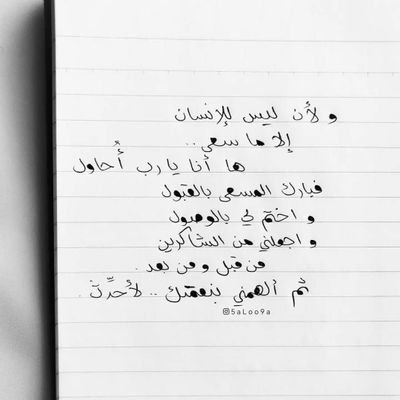 و لأن ليس للإنسان
إلا ما سعى..
ها أنا يارب أُحاول
فبارك المسعى بالقبول
و اختم لي بالوصول
و اجعلني من الشاكرين
من قبل و من بعد.
ثم ألهمني بنعمتك .. لأحدِّث.
@5aLoo9a